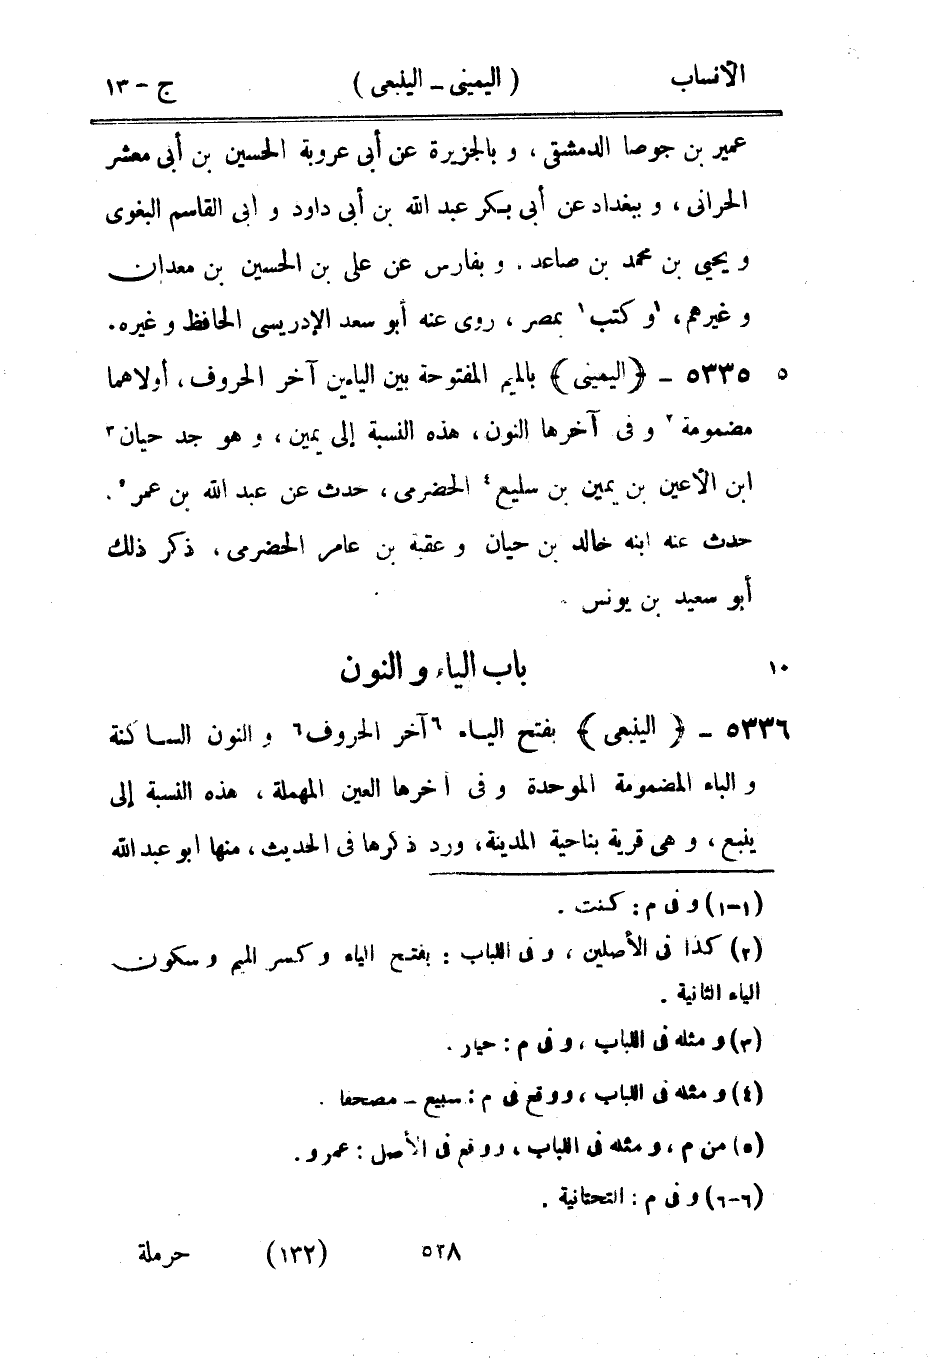 الأنساب ( اليمينى ـ الينبعى ) ج – ١٣
عمير بن جوصا الدمشقى ، و بالجزيرة عن أبى عروبة الحسين بن أبى معشر
الحرانى ، و ببغداد عن أبى بكر عبد الله بن أبى داود و أبى القاسم البغوى
و يحيى بن محمد بن صاعد . و بفارس عن على بن الحسين بن معدان
و غيرهم ، ١و كتب١ بمصر ، روى عنه أبو سعد الإدريسى الحافظ و غيره .
٥ ٥٣٣٥ ـ ﴿ اليمينى ﴾ بالميم المفتوحة بين الياءين آخر الحروف ، أولاهما
مضمومة ٢ و فى آخرها النون ، هذه النسبة إلى يمين ، و هو جد حيان ٣
ابن الأعين بن يمين بن سليع ٤ الحضرمى ، حدث عن عبد الله بن عمر ٥ .
حدث عنه ابنه خالد بن حيان و عقبة بن عامر الحضرمى ، ذكر ذلك
أبو سعيد بن يونس .
١٠ باب الياء و النون
٥٣٣٦ ـ ﴿ الينبعى ﴾ بفتح اليـاء ٦آخر الحروف٦ و النون الساكنة
و الباء المضمومة الموحدة و فى آخرها العين المهملة ، هذه النسبة إلى
ينبع ، و هى قرية بناحية المدينة ، ورد ذكرها فى الحديث ، منها ابو عبد الله
(١–١) و فى م : كنت .
(٢) كذا فى الأصلين ، و فى اللباب : بفتح الياء و كسر الميم و سكون
الياء الثانية .
(٣) و مثله فى اللباب ، و فى م : حيار .
(٤) و مثله فى اللباب ، و وقع فى م : سبيع ـ مصحفا .
(٥) من م ، و مثله فى اللباب ، و وقع فى الأصل : عمرو .
(٦–٦) و فى م : التحتانية .
٥٢٨ (١٣٢) حرملة